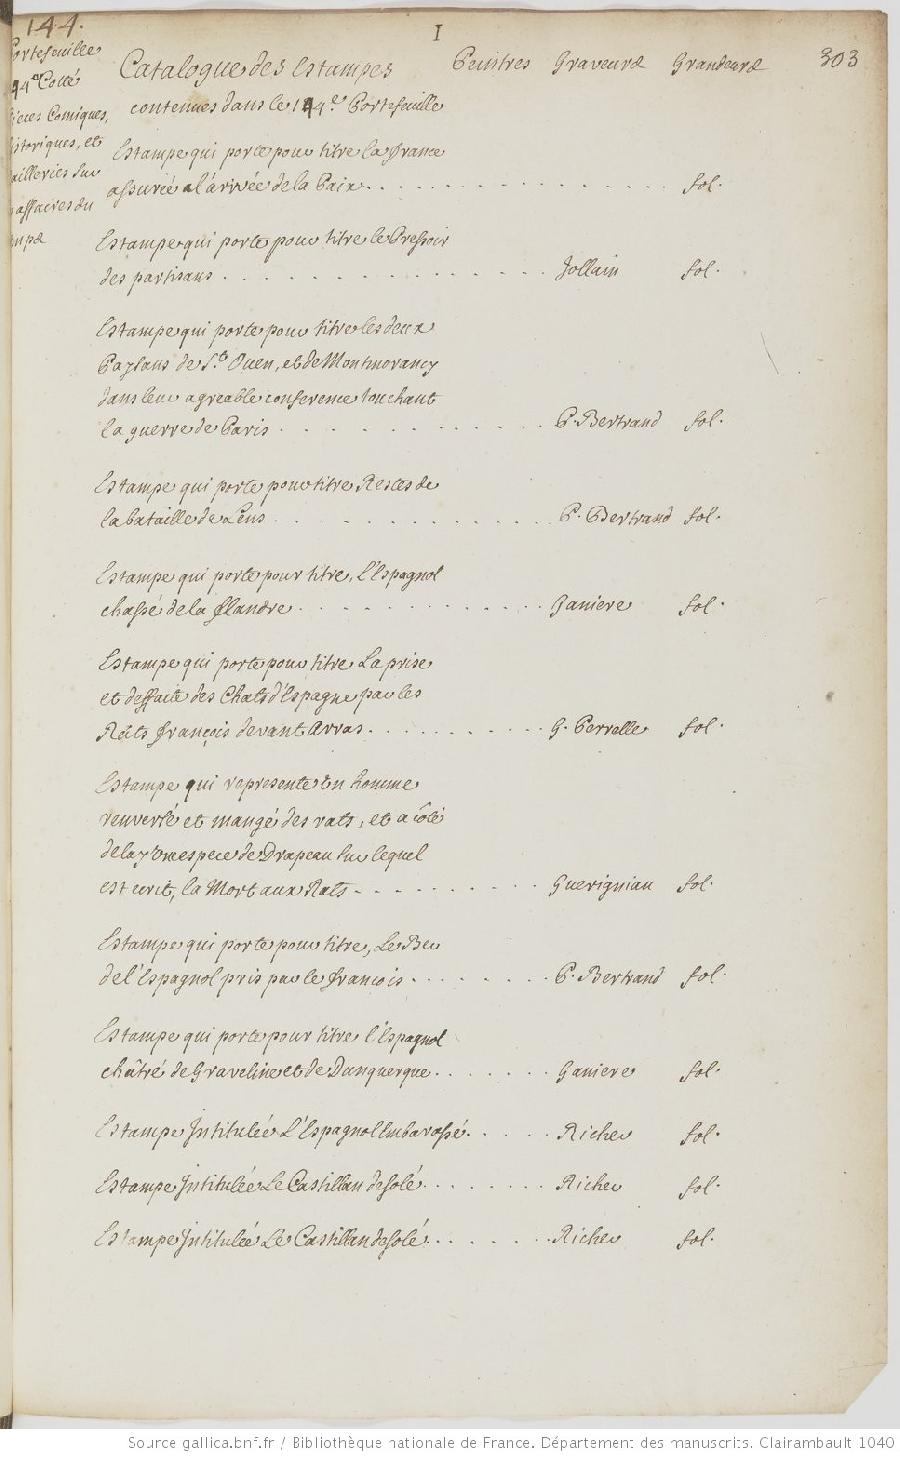 144.
I
303
Portefeuille
44e Cotté
Pieces Comiques,
historiques, et
railleries sur
affaires du
Catalogue des Estampes Peintres Graveurs Grandeurs
contenues dans le 144e Portefeuille
Estampe qui porte pour titre la france
assurée a l'arivée de la Paix . . . . . . . . . . . . . . . fol.
Estampe qui porte pour titre le Pressoir
des partisans . . . . . . . . . . . . Jollain fol.
Estampe qui porte pour titre les deux
Paysans de St. Ouen, et de Montmorancy
dans leur agreable conference touchant
la guerre de Paris . . . . . . . . . . P. Bertrand fol.
Estampe qui porte pour titre Restes de
la bataille de Lens . . . . . . . . . . P. Bertrand fol.
Estampe qui porte pour titre, L'Espagnol
chassé de la flandre . . . . . . . . . . Ganiere fol.
Estampe qui porte pour titre La prise
et deffaite des Chats d'Espagne par les
Rats françois devant Arras . . . . . . . . G. Perrelle fol.
Estampe qui represente un homme
renversé et mangé des rats, et a côté
de luy une espece de Drapeau sur lequel
est ecrit, la Mort aux Rats - - - - - - - - Guerigniau fol.
Estampe qui porte pour titre, Le Bec
de l'Espagnol pris par le francois . . . . . . P. Bertrand fol.
Estampe qui porte pour titre l'Espagnol
châtré de Graveline et de Dunquerque . . . . . Ganiere fol.
Estampe Intitulée L'Espagnol Embarassé . . . . . Richer fol.
Estampe Intitulée Le Castillan desolé . . . . . . Richer fol.
Estampe Intitulée Le Castillan desolé . . . . . . Richer fol.
Source gallica.bnf.fr / Bibliothèque nationale de France. Département des manuscrits. Clairambault 1040